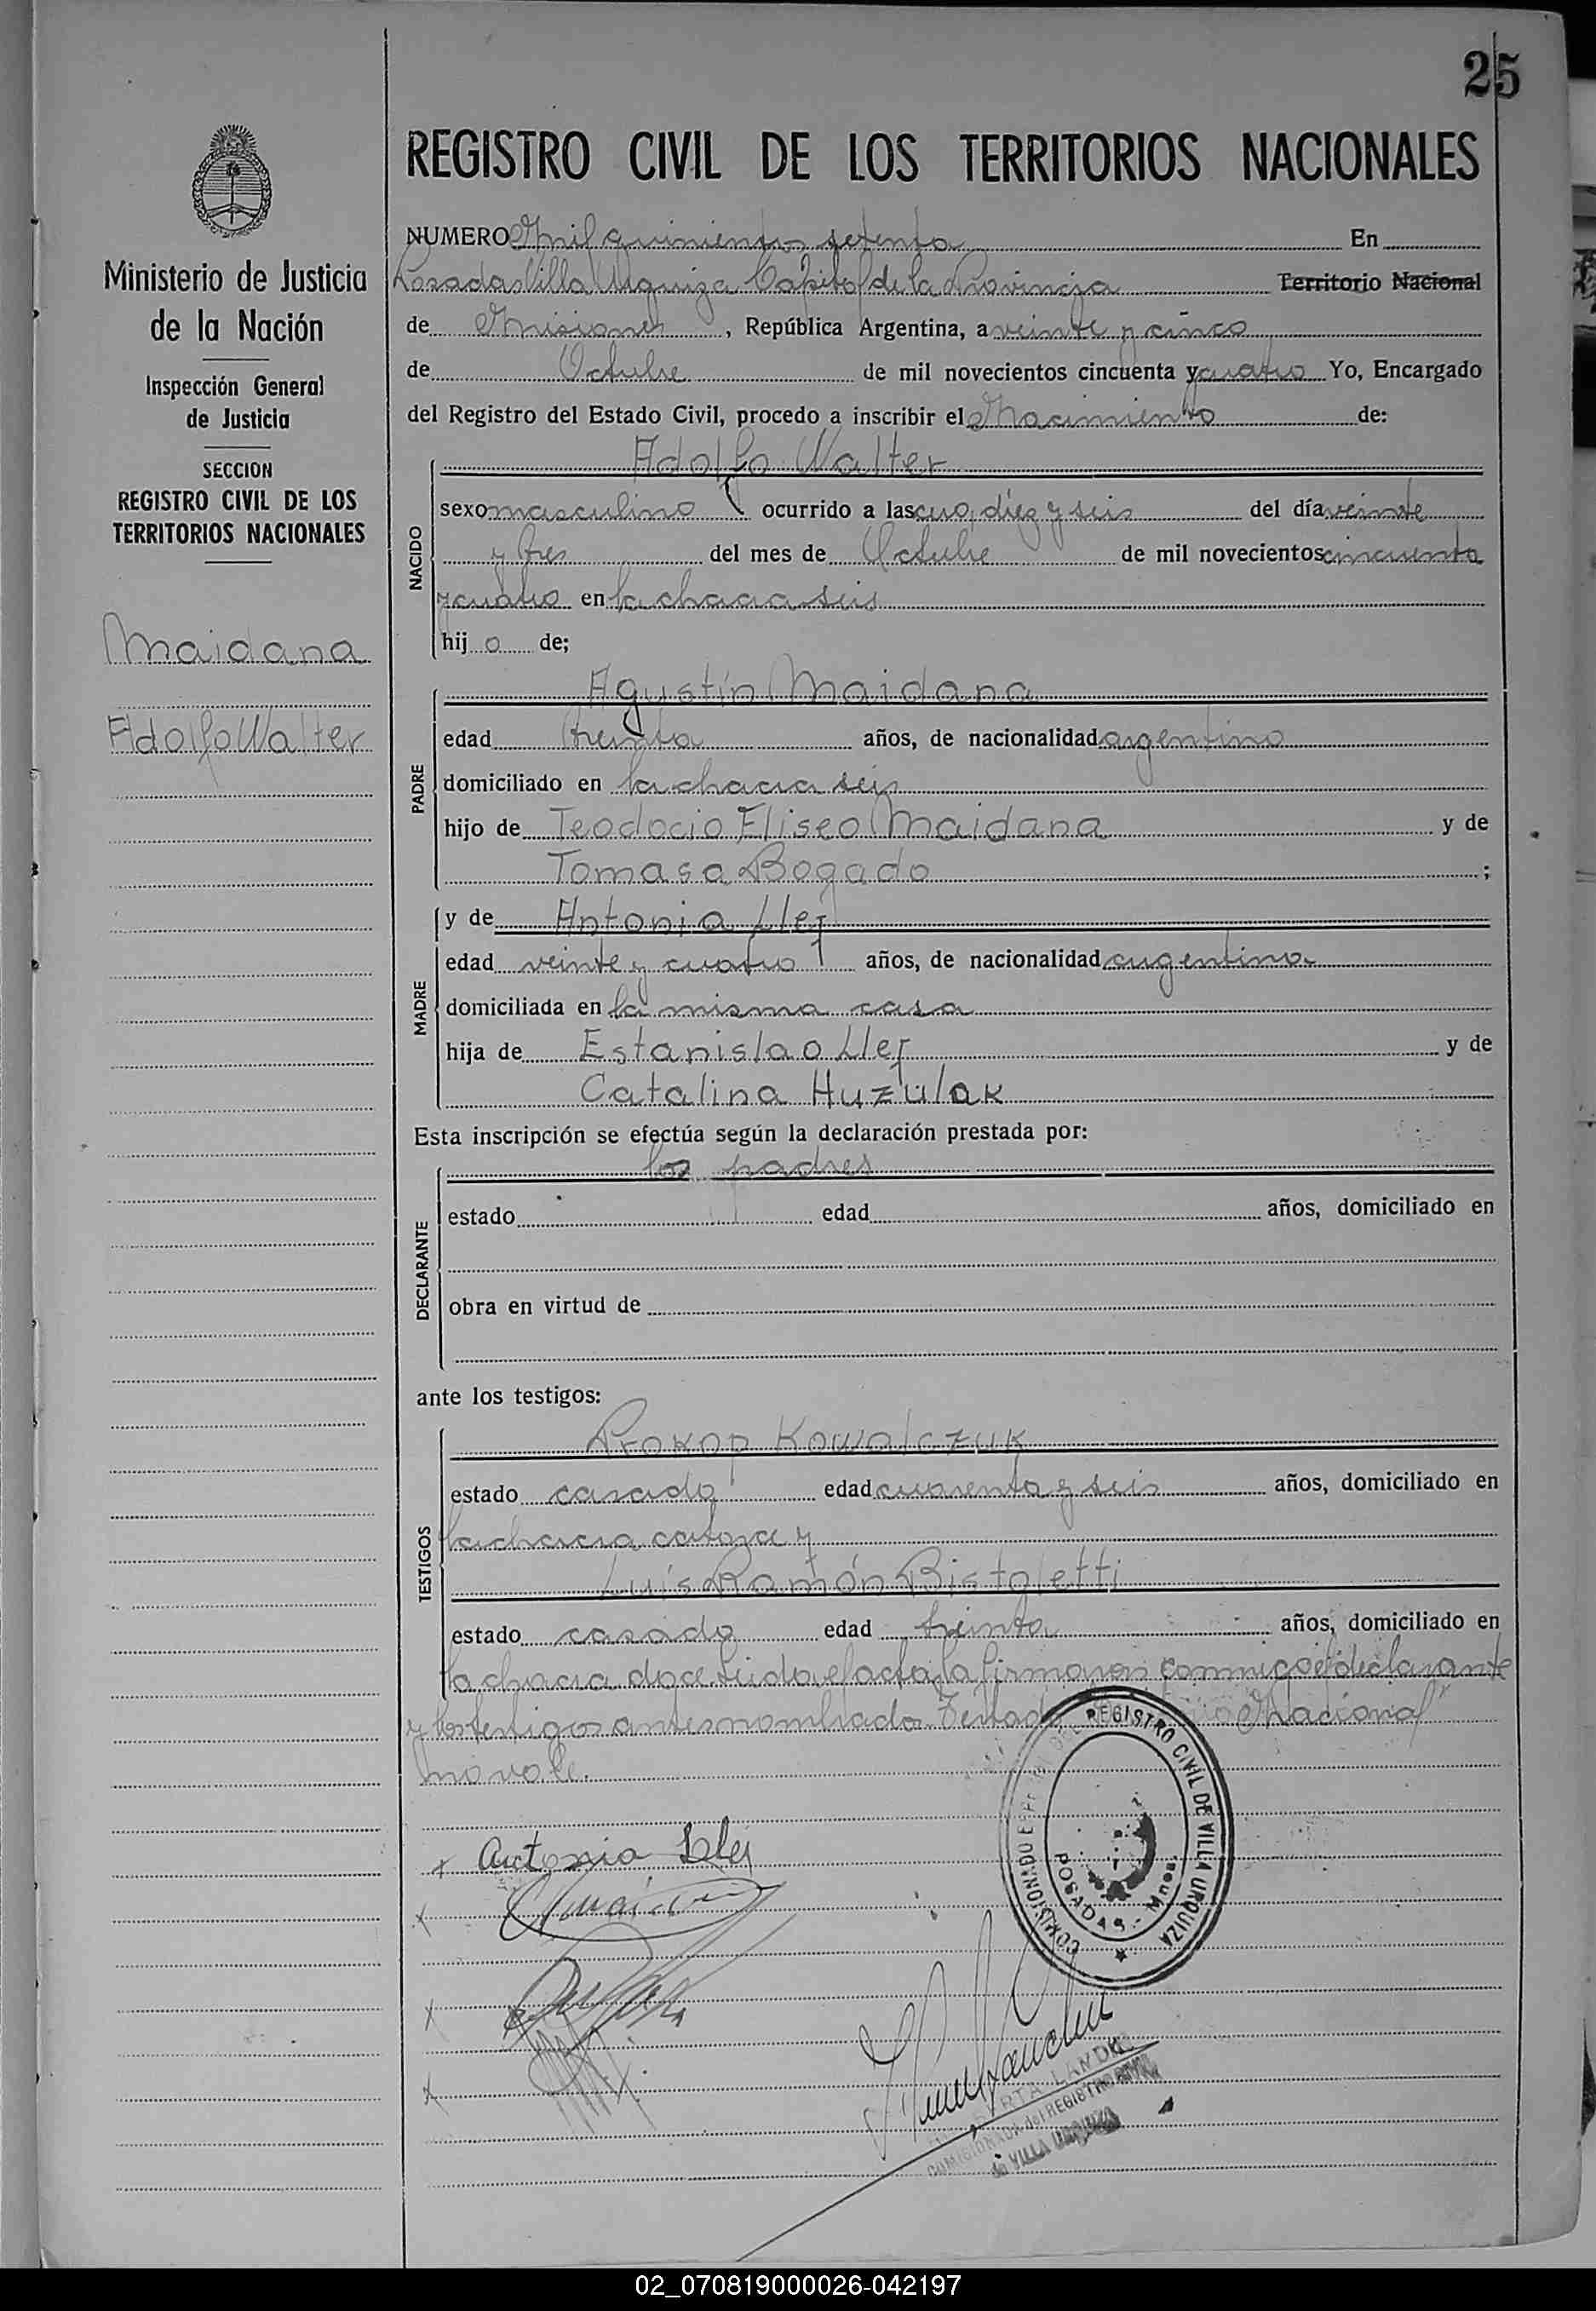 25
REGISTRO CIVIL DE LOS TERRITORIOS NACIONALES
Ministerio de Justicia
de la Nación
Inspección General
de Justicia
SECCION
REGISTRO CIVIL DE LOS
TERRITORIOS NACIONALES
Maidana
Adolfo Walter
NUMERO Mil quinientos setenta En
Posadas Villa Urquiza Capital de la Provincia Territorio Nacional
de Misiones, República Argentina, a veinte y cinco
de Octubre de mil novecientos cincuenta y cuatro Yo, Encargado
del Registro del Estado Civil, procedo a inscribir el Nacimiento de:
NACIDO
Adolfo Walter
sexo masculino ocurrido a las diez y seis del día veinte
y tres del mes de Octubre de mil novecientos cincuenta
y cuatro en la chacra seis
hij o de;
PADRE
Agustín Maidana
edad treinta años, de nacionalidad argentino
domiciliado en la chacra seis
hijo de Teodocio Eliseo Maidana y de
Tomasa Bogado ;
MADRE
y de Antonia Llej
edad veinte y cuatro años, de nacionalidad argentina
domiciliada en la misma casa
hija de Estanislao Llej y de
Catalina Huzulak
Esta inscripción se efectúa según la declaración prestada por:
DECLARANTE
los padres
estado edad años, domiciliado en
obra en virtud de
ante los testigos:
TESTIGOS
Prokop Kowalczuk
estado casado edad cuarenta y seis años, domiciliado en
la chacra catorce y
Luis Ramón Bistoletti
estado casado edad treinta años, domiciliado en
la chacra doce. Leida el acta, la firmaron conmigo el declarante
y los testigos antes nombrados. Testado Nacional"
no vale.
REGISTRO CIVIL DE VILLA URQUIZA
POSADAS - Mnes.
x Antonia
x
x
x
COMISIONADA del REGISTRO
de VILLA URQUIZA
02_070819000026-042197